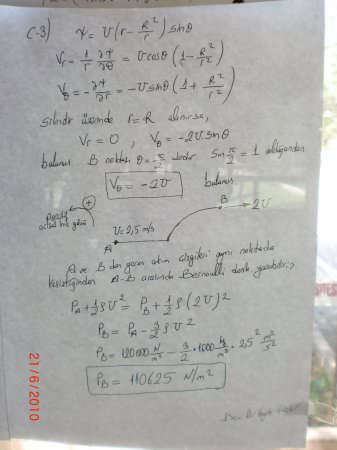 C-3) ψ = U(r - R²/r) sinθ
Vr = 1/r ∂ψ/∂θ = U cosθ (1 - R²/r²)
Vθ = -∂ψ/∂r = -U sinθ (1 + R²/r²)
silindir üzerinde r=R alınırsa,
Vr = 0 , Vθ = -2U sinθ
bulunur B noktası θ = π/2 dedir Sin π/2 = 1 olduğundan
Vθ = -2U bulunur
+
B → 2U
U = 2,5 m/s
A
A ve B den geçen akım çizgileri aynı noktada
kesiştiğinden A-B arasında Bernoulli denk. yazabiliriz;
P_A + 1/2 ρU² = P_B + 1/2 ρ(2U)²
P_B = P_A - 3/2 ρU²
P_B = 120000 N/m² - 3/2 * 1000 kg/m³ * 2,5² m²/s²
P_B = 110625 N/m²
21/6/2010